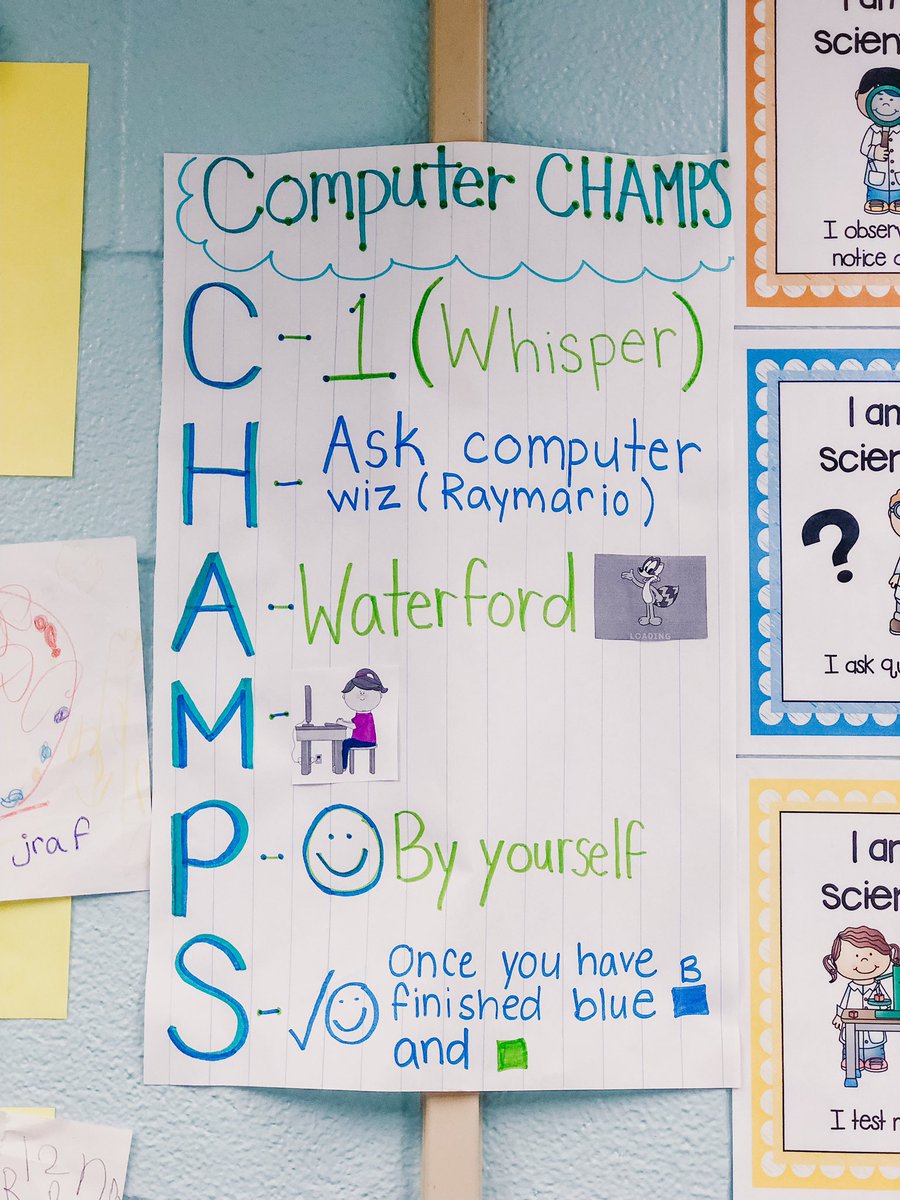 Computer CHAMPS
C - 1 (Whisper)
H - Ask computer
wiz (Raymario)
A - Waterford
LOADING
M -
P - By yourself
S - √ Once you have
finished blue B
and
jraf
I am
scien
I observ
notice
I am
scien
?
I ask qu
I am
scien
I test